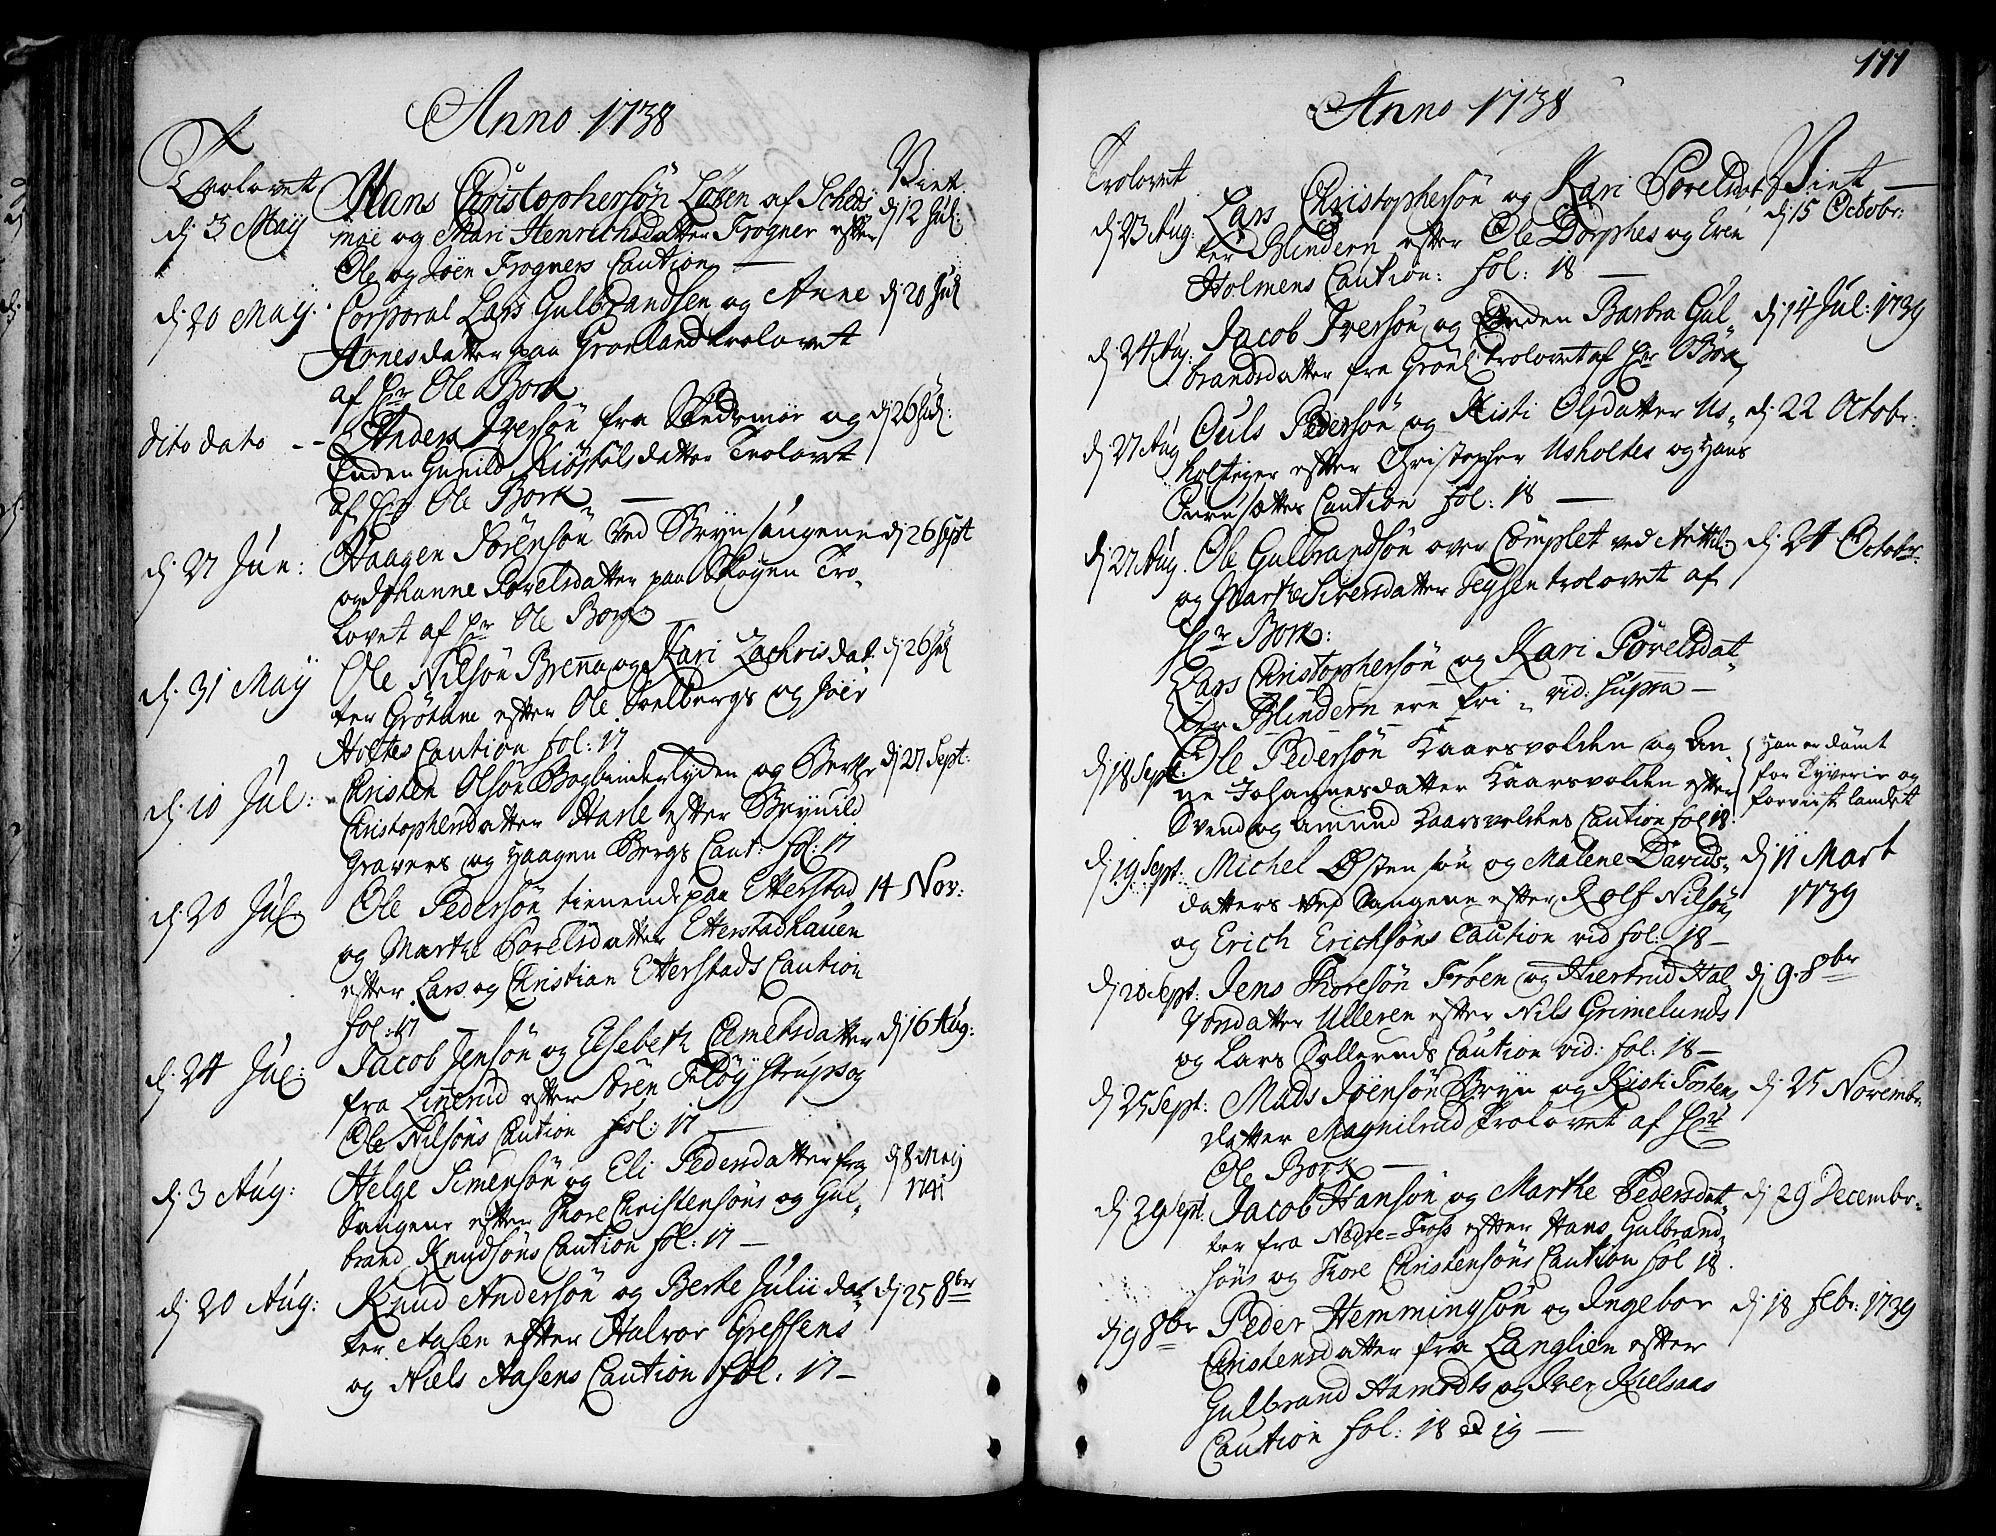 Anno 1738
Trolovet
Viet
d. 3 Maij
Hans Christophersön Löken af Scheds
d. 12 Jul:
moe og Mari Henrichsdatter Frogner efter
Ole og Joen Frogners Caution —
d. 20 Maij.
Corporal Lars Gulbrandsen og Anne
d. 20 Jul
Arnesdatter paa Grönland trolovet
af Hr Ole Bork
dito dato --
Anders Iversön fra Skedsmoe og
d. 26 Jul:
Enken Gunild Kiöstelsdatter Trolovet
af Hr Ole Bork —
d. 27 Jun:
Haagen Sörensön ved Brynsaugene
d. 26 Sept
og Johanne Povelsdatter paa Sköyen Tro-
lovet af Hr Ole Bork
d. 31 Maij
Ole Nilsön Brenna og Kari Zachrisdat
d. 26 Jul
ter Grötum efter Ole Voelbergs og Joen
Holtes Caution fol: 17
d. 10 Jul:
Christen Olsön Bogbinderlyden og Berte
d. 27 Sept:
Christophersdatter Hasle efter Brynild
Gravers og Haagen Bergs Caut: fol: 17
d. 20 Jul
Ole Pedersön tienende paa Etterstad
14 Nov:
og Marthe Povelsdatter Etterstadhauen
efter Lars og Christian Etterstads Caution
fol: 17
d. 24 Jul:
Jacob Jensön og Elsebeth Clemetsdatter
d. 16 Aug:
fra Linerud efter Sören Flöystrups og
Ole Nilsöns Caution fol: 17 —
d. 3 Aug:
Helge Simensön og Eli Pedersdatter fra
d. 8 Maij
1741
Saugene efter Thore Christensöns og Gul-
brand Knudsöns Caution fol: 17 —
d. 20 Aug:
Knud Andersön og Berte Julii dat
d. 25 8br
ter Aasen efter Halvor Grefsens
og Niels Aasens Caution fol: 17 —
111
Anno 1738
Trolovet
Viet —
d. 23 Aug:
Lars Christophersön og Kari Povelsdat
d. 15 Octobr:
ter Blindern efter Ole Dorphes og Even
Holmens Caution: fol: 18 —
d. 24 Aug:
Jacob Iversön og Enken Barbra Gul
d. 14 Jul: 1739
brandsdatter fra Grönl trolovet af Hr O Bork
d. 27 Aug
Ouls Pedersön og Kisti Olsdatter Us-
d. 22 Octobr:
holteier efter Christopher Usholtes og Hans
Caution fol: 18 —
d. 27 Aug.
Ole Gulbrandsön over Complet ved Artill:
d. 24 Octobr.
og Marthe Siversdatter Teysen trolovet af
Hr Bork:
Lars Christophersön og Kari Pövelsdat-
ter Blindern ere fri vid: supra —
d. 18 Sept:
Ole Pedersön Kaarsvolden og An
Han er dömt
ne Johannesdatter Kaarsvolden efter
for Tyverie og
Svend og Amund Kaarsvoldens Caution fol 18
forviist landet
d. 19 Sept:
Michel Östensön og Malene Davids-
d. 11 Mart
datters ved Saugene efter Rolf Nilsön
1739
og Erich Erichsöns Caution vid fol: 18 —
d. 20 Sept:
Jens Thoresön Fröen og Hiertrud Hal
d. 9. 8br
vordatter Ulleren efter Nils Grimelunds
og Lars Solleruds Caution vid: fol: 18 —
d. 25 Sept:
Mads Joensön Bryn og Kisti Torsten
d. 25 Novembr
datter Magnilrud Trolovet af Hr
Ole Bork —
d. 29 Sept.
Jacob Hansön og Marthe Pedersdat
d. 29 Decembr.
ter fra Nedre=Foss efter Hans Gulbrand
söns og Thore Christensöns Caution fol 18.
d. 9 8br
Peder Hemmingsön og Ingebor
d. 18 Febr: 1739
Christensdatter fra Langlien efter
Gulbrand Hamodts og Iver Kielsaas
Caution fol: 18 et 19 —